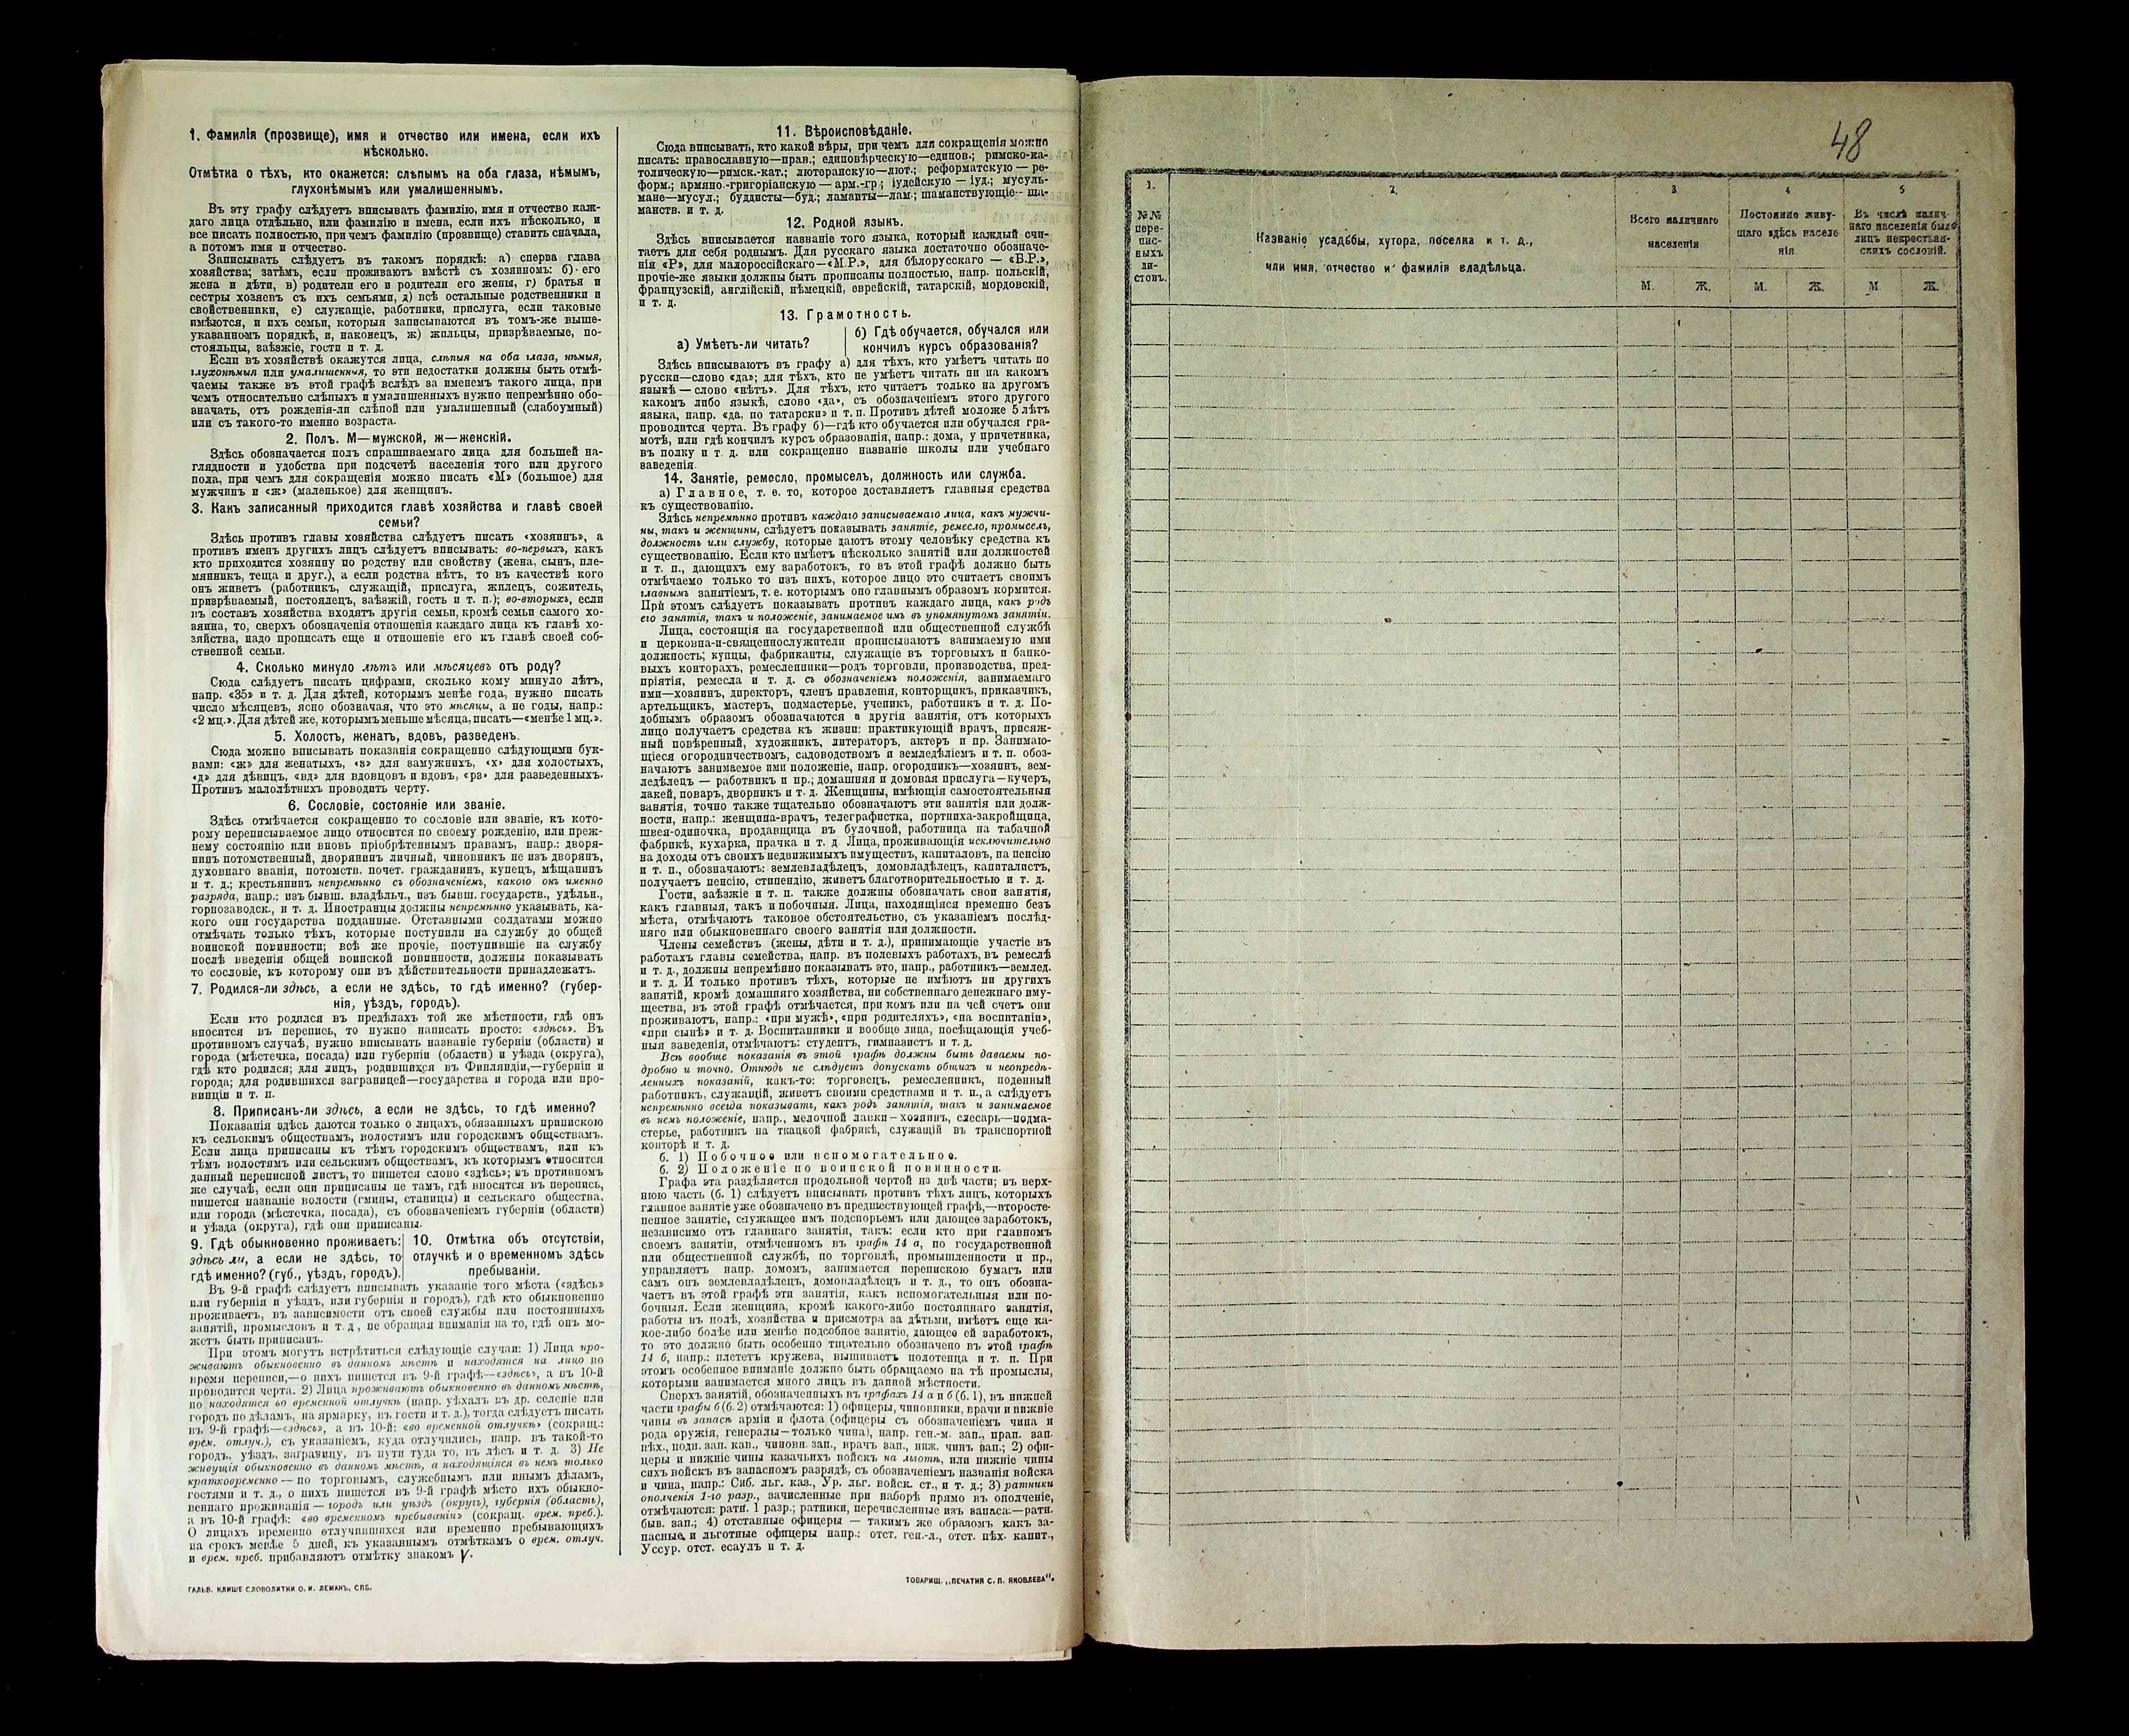 1. Фамилія (прозвище), имя и отчество или имена, если ихъ
нѣсколько.
Отмѣтка о тѣхъ, кто окажется: слѣпымъ на оба глаза, нѣмымъ,
глухонѣмымъ или умалишеннымъ.
Въ эту графу слѣдуетъ вписывать фамилію, имя и отчество каж-
даго лица отдѣльно, или фамилію и имена, если ихъ нѣсколько, и
все писать полностью, при чемъ фамилію (прозвище) ставить сначала,
а потомъ имя и отчество.
Записывать слѣдуетъ въ такомъ порядкѣ: а) сперва глава
хозяйства; затѣмъ, если проживаютъ вмѣстѣ съ хозяиномъ: б) его
жена и дѣти, в) родители его и родители его жены, г) братья и
сестры хозяевъ съ ихъ семьями, д) всѣ остальные родственники и
свойственники, е) служащіе, работники, прислуга, если таковые
имѣются, и ихъ семьи, которыя записываются въ томъ-же выше-
указанномъ порядкѣ, и, наконецъ, ж) жильцы, призрѣваемые, по-
стояльцы, заѣзжіе, гости и т. д.
Если въ хозяйствѣ окажутся лица, слѣпыя на оба глаза, нѣмыя,
глухонѣмыя или умалишенныя, то эти недостатки должны быть отмѣ-
чаемы также въ этой графѣ вслѣдъ за именемъ такого лица, при
чемъ относительно слѣпыхъ и умалишенныхъ нужно непремѣнно обо-
значать, отъ рожденія-ли слѣпой или умалишенный (слабоумный)
или съ такого-то именно возраста.
2. Полъ. М—мужской, ж—женскій.
Здѣсь обозначается полъ спрашиваемаго лица для большей на-
глядности и удобства при подсчетѣ населенія того или другого
пола, при чемъ для сокращенія можно писать «М» (большое) для
мужчинъ и «ж» (маленькое) для женщинъ.
3. Какъ записанный приходится главѣ хозяйства и главѣ своей
семьи?
Здѣсь противъ главы хозяйства слѣдуетъ писать «хозяинъ», а
противъ именъ другихъ лицъ слѣдуетъ вписывать: во-первыхъ, какъ
кто приходится хозяину по родству или свойству (жена, сынъ, пле-
мянникъ, теща и друг.), а если родства нѣтъ, то въ качествѣ кого
онъ живетъ (работникъ, служащій, прислуга, жилецъ, сожитель,
призрѣваемый, постоялецъ, заѣзжій, гость и т. п.); во-вторыхъ, если
въ составъ хозяйства входятъ другія семьи, кромѣ семьи самого хо-
зяина, то, сверхъ обозначенія отношенія каждаго лица къ главѣ хо-
зяйства, надо прописать еще и отношеніе его къ главѣ своей соб-
ственной семьи.
4. Сколько минуло лѣтъ или мѣсяцевъ отъ роду?
Сюда слѣдуетъ писать цифрами, сколько кому минуло лѣтъ,
напр. «35» и т. д. Для дѣтей, которымъ менѣе года, нужно писать
число мѣсяцевъ, ясно обозначая, что это мѣсяцы, а не годы, напр.:
«2 мц.». Для дѣтей же, которымъ меньше мѣсяца, писать—«менѣе 1 мц.».
5. Холостъ, женатъ, вдовъ, разведенъ.
Сюда можно вписывать показанія сокращенно слѣдующими бук-
вами: «ж» для женатыхъ, «з» для замужнихъ, «х» для холостыхъ,
«д» для дѣвицъ, «вд» для вдовцовъ и вдовъ, «рз» для разведенныхъ.
Противъ малолѣтнихъ проводить черту.
6. Сословіе, состояніе или званіе.
Здѣсь отмѣчается сокращенно то сословіе или званіе, къ кото-
рому переписываемое лицо относится по своему рожденію, или преж-
нему состоянію или вновь пріобрѣтеннымъ правамъ, напр.: дворя-
нинъ потомственный, дворянинъ личный, чиновникъ не изъ дворянъ,
духовнаго званія, потомств. почет. гражданинъ, купецъ, мѣщанинъ
и т. д.; крестьянинъ непремѣнно съ обозначеніемъ, какого онъ именно
разряда, напр.: изъ бывш. владѣльч., изъ бывш. государств., удѣльн.,
горнозаводск., и т. д. Иностранцы должны непремѣнно указывать, ка-
кого они государства подданные. Отставными солдатами можно
отмѣчать только тѣхъ, которые поступили на службу до общей
воинской повинности; всѣ же прочіе, поступившіе на службу
послѣ введенія общей воинской повинности, должны показывать
то сословіе, къ которому они въ дѣйствительности принадлежатъ.
7. Родился-ли здѣсь, а если не здѣсь, то гдѣ именно? (губер-
нія, уѣздъ, городъ).
Если кто родился въ предѣлахъ той же мѣстности, гдѣ онъ
вносится въ перепись, то нужно написать просто: «здѣсь». Въ
противномъ случаѣ, нужно вписывать названіе губерніи (области) и
города (мѣстечка, посада) или губерніи (области) и уѣзда (округа),
гдѣ кто родился; для лицъ, родившихся въ Финляндіи,—губерніи и
города; для родившихся заграницей—государства и города или про-
винціи и т. п.
8. Приписанъ-ли здѣсь, а если не здѣсь, то гдѣ именно?
Показанія здѣсь даются только о лицахъ, обязанныхъ припискою
къ сельскимъ обществамъ, волостямъ или городскимъ обществамъ.
Если лица приписаны къ тѣмъ городскимъ обществамъ, или къ
тѣмъ волостямъ или сельскимъ обществамъ, къ которымъ относится
данный переписной листъ, то пишется слово «здѣсь»; въ противномъ
же случаѣ, если они приписаны не тамъ, гдѣ вносятся въ перепись,
пишется названіе волости (гмины, станицы) и сельскаго общества,
или города (мѣстечка, посада), съ обозначеніемъ губерніи (области)
и уѣзда (округа), гдѣ они приписаны.
9. Гдѣ обыкновенно проживаетъ:
здѣсь ли, а если не здѣсь, то
гдѣ именно? (губ., уѣздъ, городъ).
10. Отмѣтка объ отсутствіи,
отлучкѣ и о временномъ здѣсь
пребываніи.
Въ 9-й графѣ слѣдуетъ вписывать указаніе того мѣста («здѣсь»
или губернія и уѣздъ, или губернія и городъ), гдѣ кто обыкновенно
проживаетъ, въ зависимости отъ своей службы или постоянныхъ
занятій, промысловъ и т. д, не обращая вниманія на то, гдѣ онъ мо-
жетъ быть приписанъ.
При этомъ могутъ встрѣтиться слѣдующіе случаи: 1) Лица про-
живаютъ обыкновенно въ данномъ мѣстѣ и находятся на лицо во
время переписи,—о нихъ пишется въ 9-й графѣ—«здѣсь», а въ 10-й
проводится черта. 2) Лица проживаютъ обыкновенно въ данномъ мѣстѣ,
но находятся во временной отлучкѣ (напр. уѣхалъ въ др. селеніе или
городъ по дѣламъ, на ярмарку, въ гости и т. д.), тогда слѣдуетъ писать
въ 9-й графѣ—«здѣсь», а въ 10-й: «во временной отлучкѣ» (сокращ.:
врем. отлуч.), съ указаніемъ, куда отлучились, напр. въ такой-то
городъ, уѣздъ, заграницу, въ пути туда то, въ лѣсъ и т. д. 3) Не
живущія обыкновенно въ данномъ мѣстѣ, а находящіяся въ немъ только
кратковременно — по торговымъ, служебнымъ или инымъ дѣламъ,
гостями и т. д., о нихъ пишется въ 9-й графѣ мѣсто ихъ обыкно-
веннаго проживанія — городъ или уѣздъ (округъ), губернія (область),
а въ 10-й графѣ: «во временномъ пребываніи» (сокращ. врем. преб.).
О лицахъ временно отлучившихся или временно пребывающихъ
на срокъ менѣе 5 дней, къ указаннымъ отмѣткамъ о врем. отлуч.
и врем. преб. прибавляютъ отмѣтку знакомъ V.
ГАЛЬВ. КЛИШЕ СЛОВОЛИТНИ О. И. ЛЕМАНЪ, СПБ.
11. Вѣроисповѣданіе.
Сюда вписывать, кто какой вѣры, при чемъ для сокращенія можно
писать: православную—прав.; единовѣрческую—единов.; римско-ка-
толическую—римск.-кат.; лютеранскую—лют.; реформатскую — ре-
форм.; армяно-григоріанскую — арм.-гр; іудейскую — іуд.; мусуль-
мане—мусул.; буддисты—буд.; ламаиты—лам.; шаманствующіе—ша-
манств. и т. д.
12. Родной языкъ.
Здѣсь вписывается названіе того языка, который каждый счи-
таетъ для себя роднымъ. Для русскаго языка достаточно обозначе-
нія «Р», для малороссійскаго—«М.Р.», для бѣлорусскаго — «Б.Р.»,
прочіе-же языки должны быть прописаны полностью, напр. польскій,
французскій, англійскій, нѣмецкій, еврейскій, татарскій, мордовскій,
и т. д.
13. Грамотность.
а) Умѣетъ-ли читать?
б) Гдѣ обучается, обучался или
кончилъ курсъ образованія?
Здѣсь вписываютъ въ графу а) для тѣхъ, кто умѣетъ читать по
русски—слово «да»; для тѣхъ, кто не умѣетъ читать ни на какомъ
языкѣ — слово «нѣтъ». Для тѣхъ, кто читаетъ только на другомъ
какомъ либо языкѣ, слово «да», съ обозначеніемъ этого другого
языка, напр. «да, по татарски» и т. п. Противъ дѣтей моложе 5 лѣтъ
проводится черта. Въ графу б)—гдѣ кто обучается или обучался гра-
мотѣ, или гдѣ кончилъ курсъ образованія, напр.: дома, у причетника,
въ полку и т. д. или сокращенно названіе школы или учебнаго
заведенія.
14. Занятіе, ремесло, промыселъ, должность или служба.
а) Главное, т. е. то, которое доставляетъ главныя средства
къ существованію.
Здѣсь непремѣнно противъ каждаго записываемаго лица, какъ мужчи-
ны, такъ и женщины, слѣдуетъ показывать занятіе, ремесло, промыселъ,
должность или службу, которые даютъ этому человѣку средства къ
существованію. Если кто имѣетъ нѣсколько занятій или должностей
и т. п., дающихъ ему заработокъ, то въ этой графѣ должно быть
отмѣчаемо только то изъ нихъ, которое лицо это считаетъ своимъ
главнымъ занятіемъ, т. е. которымъ оно главнымъ образомъ кормится.
При этомъ слѣдуетъ показывать противъ каждаго лица, какъ родъ
его занятія, такъ и положеніе, занимаемое имъ въ упомянутомъ занятіи.
Лица, состоящія на государственной или общественной службѣ
и церковно-и-священнослужители прописываютъ занимаемую ими
должность; купцы, фабриканты, служащіе въ торговыхъ и банко-
выхъ конторахъ, ремесленники—родъ торговли, производства, пред-
пріятія, ремесла и т. д. съ обозначеніемъ положенія, занимаемаго
ими—хозяинъ, директоръ, членъ правленія, конторщикъ, приказчикъ,
артельщикъ, мастеръ, подмастерье, ученикъ, работникъ и т. д. По-
добнымъ образомъ обозначаются и другія занятія, отъ которыхъ
лицо получаетъ средства къ жизни: практикующій врачъ, присяж-
ный повѣренный, художникъ, литераторъ, актеръ и пр. Занимаю-
щіеся огородничествомъ, садоводствомъ и земледѣліемъ и т. п. обоз-
начаютъ занимаемое ими положеніе, напр. огородникъ—хозяинъ, зем-
ледѣлецъ — работникъ и пр.; домашняя и домовая прислуга—кучеръ,
лакей, поваръ, дворникъ и т. д. Женщины, имѣющія самостоятельныя
занятія, точно также тщательно обозначаютъ эти занятія или долж-
ности, напр.: женщина-врачъ, телеграфистка, портниха-закройщица,
швея-одиночка, продавщица въ булочной, работница на табачной
фабрикѣ, кухарка, прачка и т. д. Лица, проживающія исключительно
на доходы отъ своихъ недвижимыхъ имуществъ, капиталовъ, на пенсію
и т. п., обозначаютъ: землевладѣлецъ, домовладѣлецъ, капиталистъ,
получаетъ пенсію, стипендію, живетъ благотворительностью и т. д.
Гости, заѣзжіе и т. п. также должны обозначать свои занятія,
какъ главныя, такъ и побочныя. Лица, находящіяся временно безъ
мѣста, отмѣчаютъ таковое обстоятельство, съ указаніемъ послѣд-
няго или обыкновеннаго своего занятія или должности.
Члены семействъ (жены, дѣти и т. д.), принимающіе участіе въ
работахъ главы семейства, напр. въ полевыхъ работахъ, въ ремеслѣ
и т. д., должны непремѣнно показывать это, напр., работникъ—землед.
и т. д. И только противъ тѣхъ, которые не имѣютъ ни другихъ
занятій, кромѣ домашняго хозяйства, ни собственнаго денежнаго иму-
щества, въ этой графѣ отмѣчается, при комъ или на чей счетъ они
проживаютъ, напр.: «при мужѣ», «при родителяхъ», «на воспитаніи»,
«при сынѣ» и т. д. Воспитанники и вообще лица, посѣщающія учеб-
ныя заведенія, отмѣчаютъ: студентъ, гимназистъ и т. д.
Всѣ вообще показанія въ этой графѣ должны быть даваемы по-
дробно и точно. Отнюдь не слѣдуетъ допускать общихъ и неопредѣ-
ленныхъ показаній, какъ-то: торговецъ, ремесленникъ, поденный
работникъ, служащій, живетъ своими средствами и т. п., а слѣдуетъ
непремѣнно всегда показывать, какъ родъ занятія, такъ и занимаемое
въ немъ положеніе, напр., мелочной лавки—хозяинъ, слесарь—подма-
стерье, работникъ на ткацкой фабрикѣ, служащій въ транспортной
конторѣ и т. д.
б. 1) Побочное или вспомогательное.
б. 2) Положеніе по воинской повинности.
Графа эта раздѣляется продольной чертой на двѣ части; въ верх-
нюю часть (б. 1) слѣдуетъ вписывать противъ тѣхъ лицъ, которыхъ
главное занятіе уже обозначено въ предшествующей графѣ,—второсте-
пенное занятіе, служащее имъ подспорьемъ или дающее заработокъ,
независимо отъ главнаго занятія, такъ: если кто при главномъ
своемъ занятіи, отмѣченномъ въ графѣ 14 а, по государственной
или общественной службѣ, по торговлѣ, промышленности и пр.,
управляетъ напр. домомъ, занимается перепискою бумагъ или
самъ онъ землевладѣлецъ, домовладѣлецъ и т. д., то онъ обозна-
чаетъ въ этой графѣ эти занятія, какъ вспомогательныя или по-
бочныя. Если женщина, кромѣ какого-либо постояннаго занятія,
работы въ полѣ, хозяйства и присмотра за дѣтьми, имѣетъ еще ка-
кое-либо болѣе или менѣе подсобное занятіе, дающее ей заработокъ,
то это должно быть особенно тщательно обозначено въ этой графѣ
14 б, напр.: плететъ кружева, вышиваетъ полотенца и т. п. При
этомъ особенное вниманіе должно быть обращаемо на тѣ промыслы,
которыми занимается много лицъ въ данной мѣстности.
Сверхъ занятій, обозначенныхъ въ графахъ 14 а и б (б. 1), въ нижней
части графы б (б. 2) отмѣчаются: 1) офицеры, чиновники, врачи и нижніе
чины въ запасѣ арміи и флота (офицеры съ обозначеніемъ чина и
рода оружія, генералы—только чина), напр. ген.-м. зап., прап. зап.
пѣх., подп. зап. кав., чиновн. зап., врачъ зап., ниж. чинъ зап.; 2) офи-
церы и нижніе чины казачьихъ войскъ на льготѣ, или нижніе чины
сихъ войскъ въ запасномъ разрядѣ, съ обозначеніемъ названія войска
и чина, напр.: Сиб. льг. каз., Ур. льг. войск. ст., и т. д.; 3) ратники
ополченія 1-го разр., зачисленные при наборѣ прямо въ ополченіе,
отмѣчаются: ратн. 1 разр.; ратники, перечисленные изъ запаса:—ратн.
быв. зап.; 4) отставные офицеры — такимъ же образомъ какъ за-
пасные и льготные офицеры напр.: отст. ген.-л., отст. пѣх. капит.,
Уссур. отст. есаулъ и т. д.
ТОВАРИЩ. „ПЕЧАТНЯ С. П. ЯКОВЛЕВА“.
48
1.
№№
пере-
пис-
ныхъ
ли-
стовъ.
2.
Названіе усадьбы, хутора, поселка и т. д.,
или имя, отчество и фамилія владѣльца.
3
Всего наличнаго
населенія
М.
Ж.
4
Постоянно живу-
щаго здѣсь населе
нія
М.
Ж.
5
Въ числѣ налич-
наго населенія было
лицъ некрестьян-
скихъ сословій.
М.
Ж.